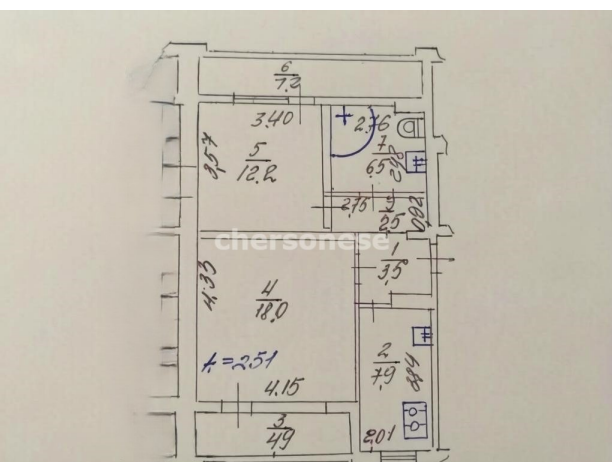 6
7.2
3.40
3,57
5
12.2
2.76
7
6.5
2,75
2.5
0.92
chersonese
1
3,5
4,33
4
18.0
h=2.51
4.15
2
7.9
3.84
2.01
3
4.9